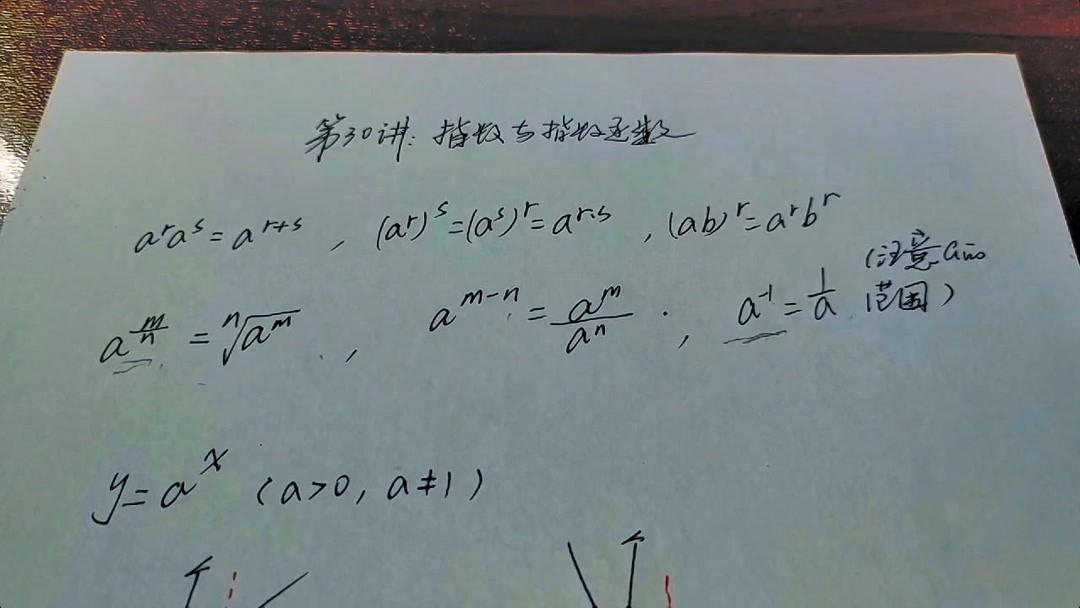 第30讲:指数与指数函数
a^r a^s = a^{r+s} , (a^r)^s = (a^s)^r = a^{r·s} , (ab)^r = a^r b^r
a^{m/n} = ⁿ√(a^m) , a^{m-n} = a^m/a^n , a^{-1} = 1/a (注意a的范围)
y = a^x (a>0, a≠1)